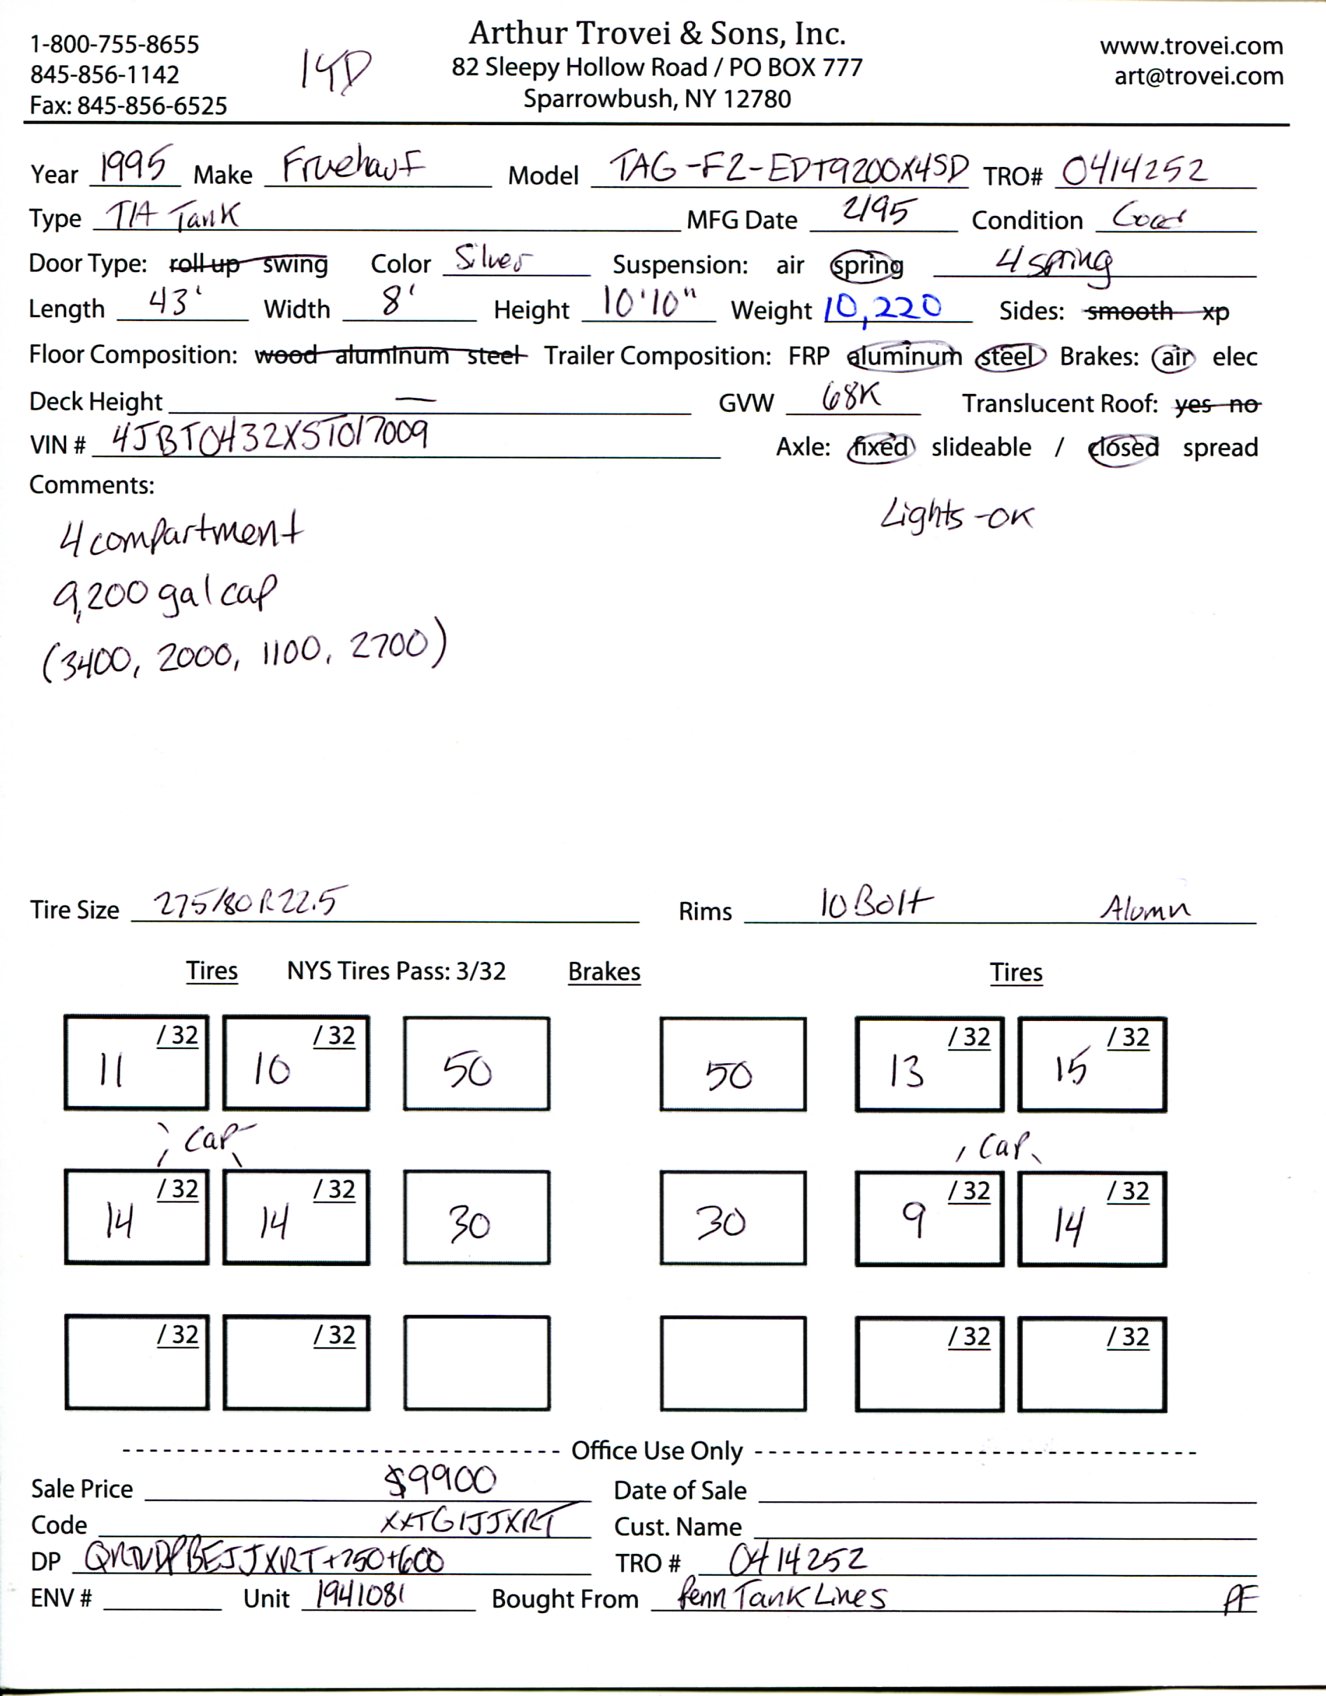 Arthur Trovei & Sons, Inc.
82 Sleepy Hollow Road / PO BOX 777
Sparrowbush, NY 12780
1-800-755-8655
845-856-1142
Fax: 845-856-6525
14D
www.trovei.com
art@trovei.com
Year 1995 Make Fruehauf Model TAG-F2-EDT9200X4SD TRO# 0414252
Type T/A Tank MFG Date 2/95 Condition Good
Door Type: roll up swing Color Silver Suspension: air spring 4 spring
Length 43' Width 8' Height 10'10" Weight 10,220 Sides: smooth xp
Floor Composition: wood aluminum steel Trailer Composition: FRP aluminum steel Brakes: air elec
Deck Height — GVW 68K Translucent Roof: yes no
VIN # 4JBT0432XST017009 Axle: fixed slideable / closed spread
Comments:
Lights -OK
4 compartment
9,200 gal cap
(3400, 2000, 1100, 2700)
Tire Size 275/80R22.5 Rims 10 Bolt Alumn
Tires NYS Tires Pass: 3/32 Brakes Tires
11 /32 10 /32 50 50 13 /32 15 /32
Cap Cap
14 /32 14 /32 30 30 9 /32 14 /32
/32 /32 /32 /32
Office Use Only
Sale Price $9900 Date of Sale
Code XXTGIJJXRT Cust. Name
DP +250+600 TRO # 0414252
ENV # Unit 1941081 Bought From Penn Tank Lines PF